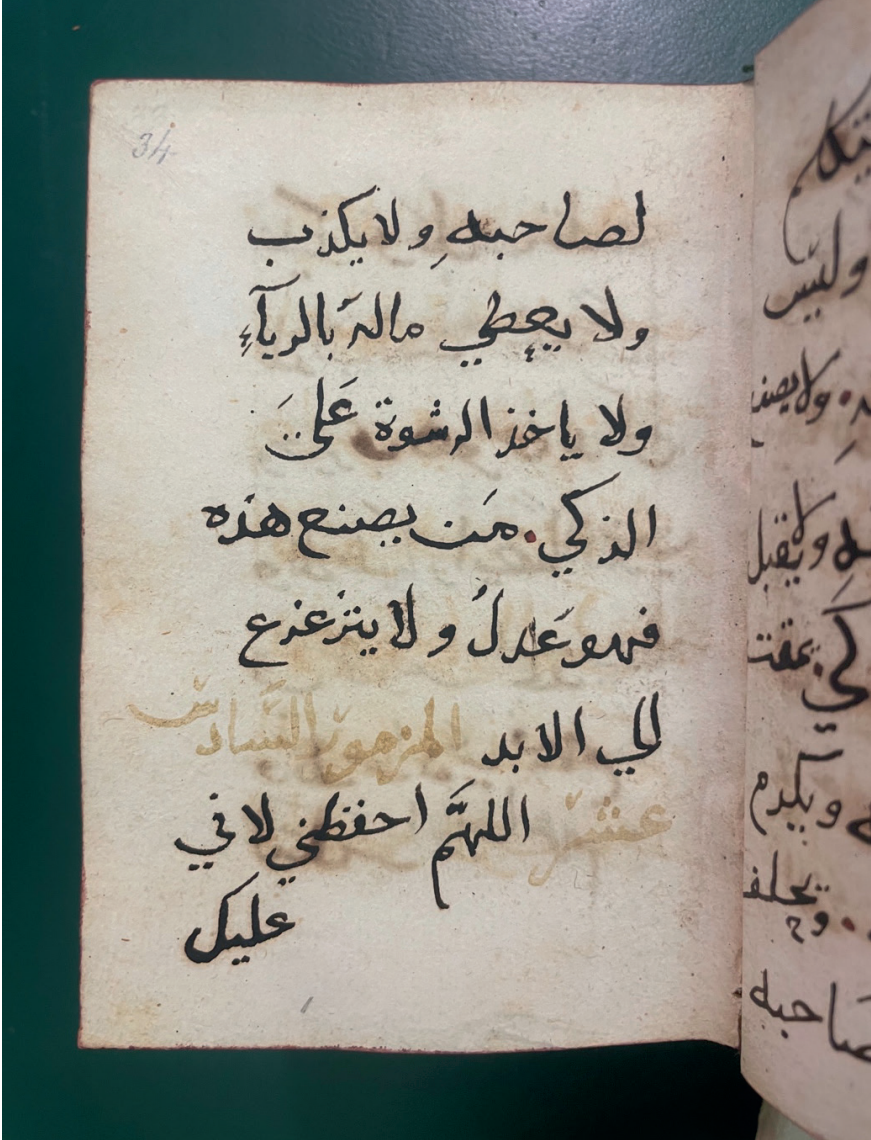 34
لصاحبه ولا يكذب
ولا يعطي ماله بالريآءِ
ولا ياخذ الرشوة عَلىَ
الذكي. مَن يصنع هذه
فهو عَدلُ ولا يتزعزع
الي الابد المزمور السَّادس
عشر اللهَّم احفظني لاني
عليك
وليس
ولا يصنع
ولا يقبل
يمقت
ويكرم
ويحلف
صاحبه